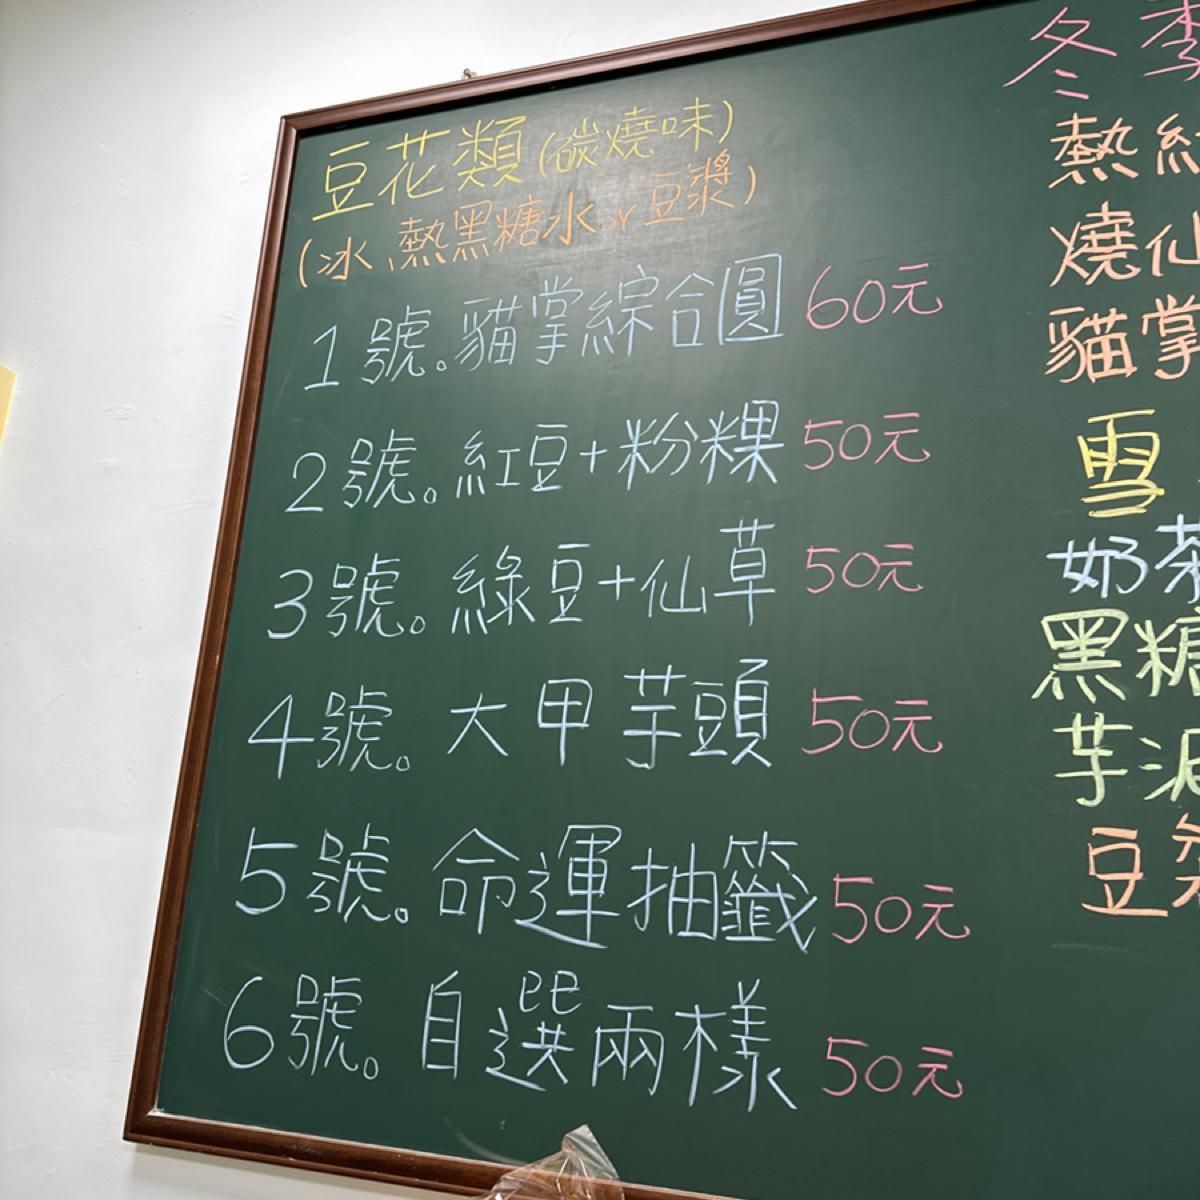 豆花類(碳燒味)
(冰、熱黑糖水or豆漿)
1號。貓掌綜合圓 60元
2號。紅豆+粉粿 50元
3號。綠豆+仙草 50元
4號。大甲芋頭 50元
5號。命運抽籤 50元
6號。自選兩樣 50元
冬季
熱紅
燒仙
貓掌
雪
奶茶
黑糖
芋泥
豆